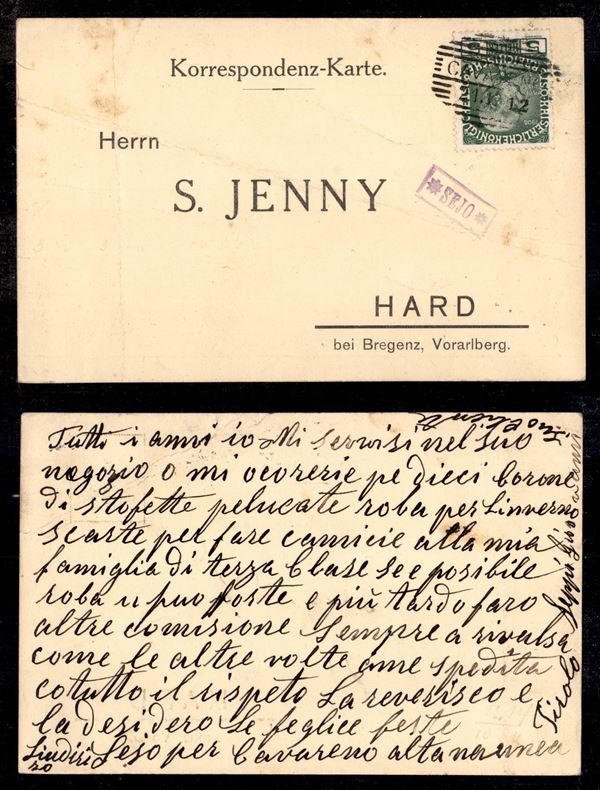 Korrespondenz-Karte.
Herrn
S. JENNY
HARD
bei Bregenz, Vorarlberg.
*SEJO*
12
5 5
Tutti i anni io Mi servisi nel suo
negozio o mi ocorerie pe dieci Corone
di stofette pelucate roba per Linverno
scarte per fare camicie alla mia
famiglia di terza Clase se e posibile
roba u puo forte e più tardo faro
altre comisione Sempre a rivalsa
come le altre volte ame spedita
cotutto il rispeto La reverisco e
la desidero Le feglice feste
Lindiri
zo
Sejo per Cavareno alta naunea
Tirolo
suo Cliente